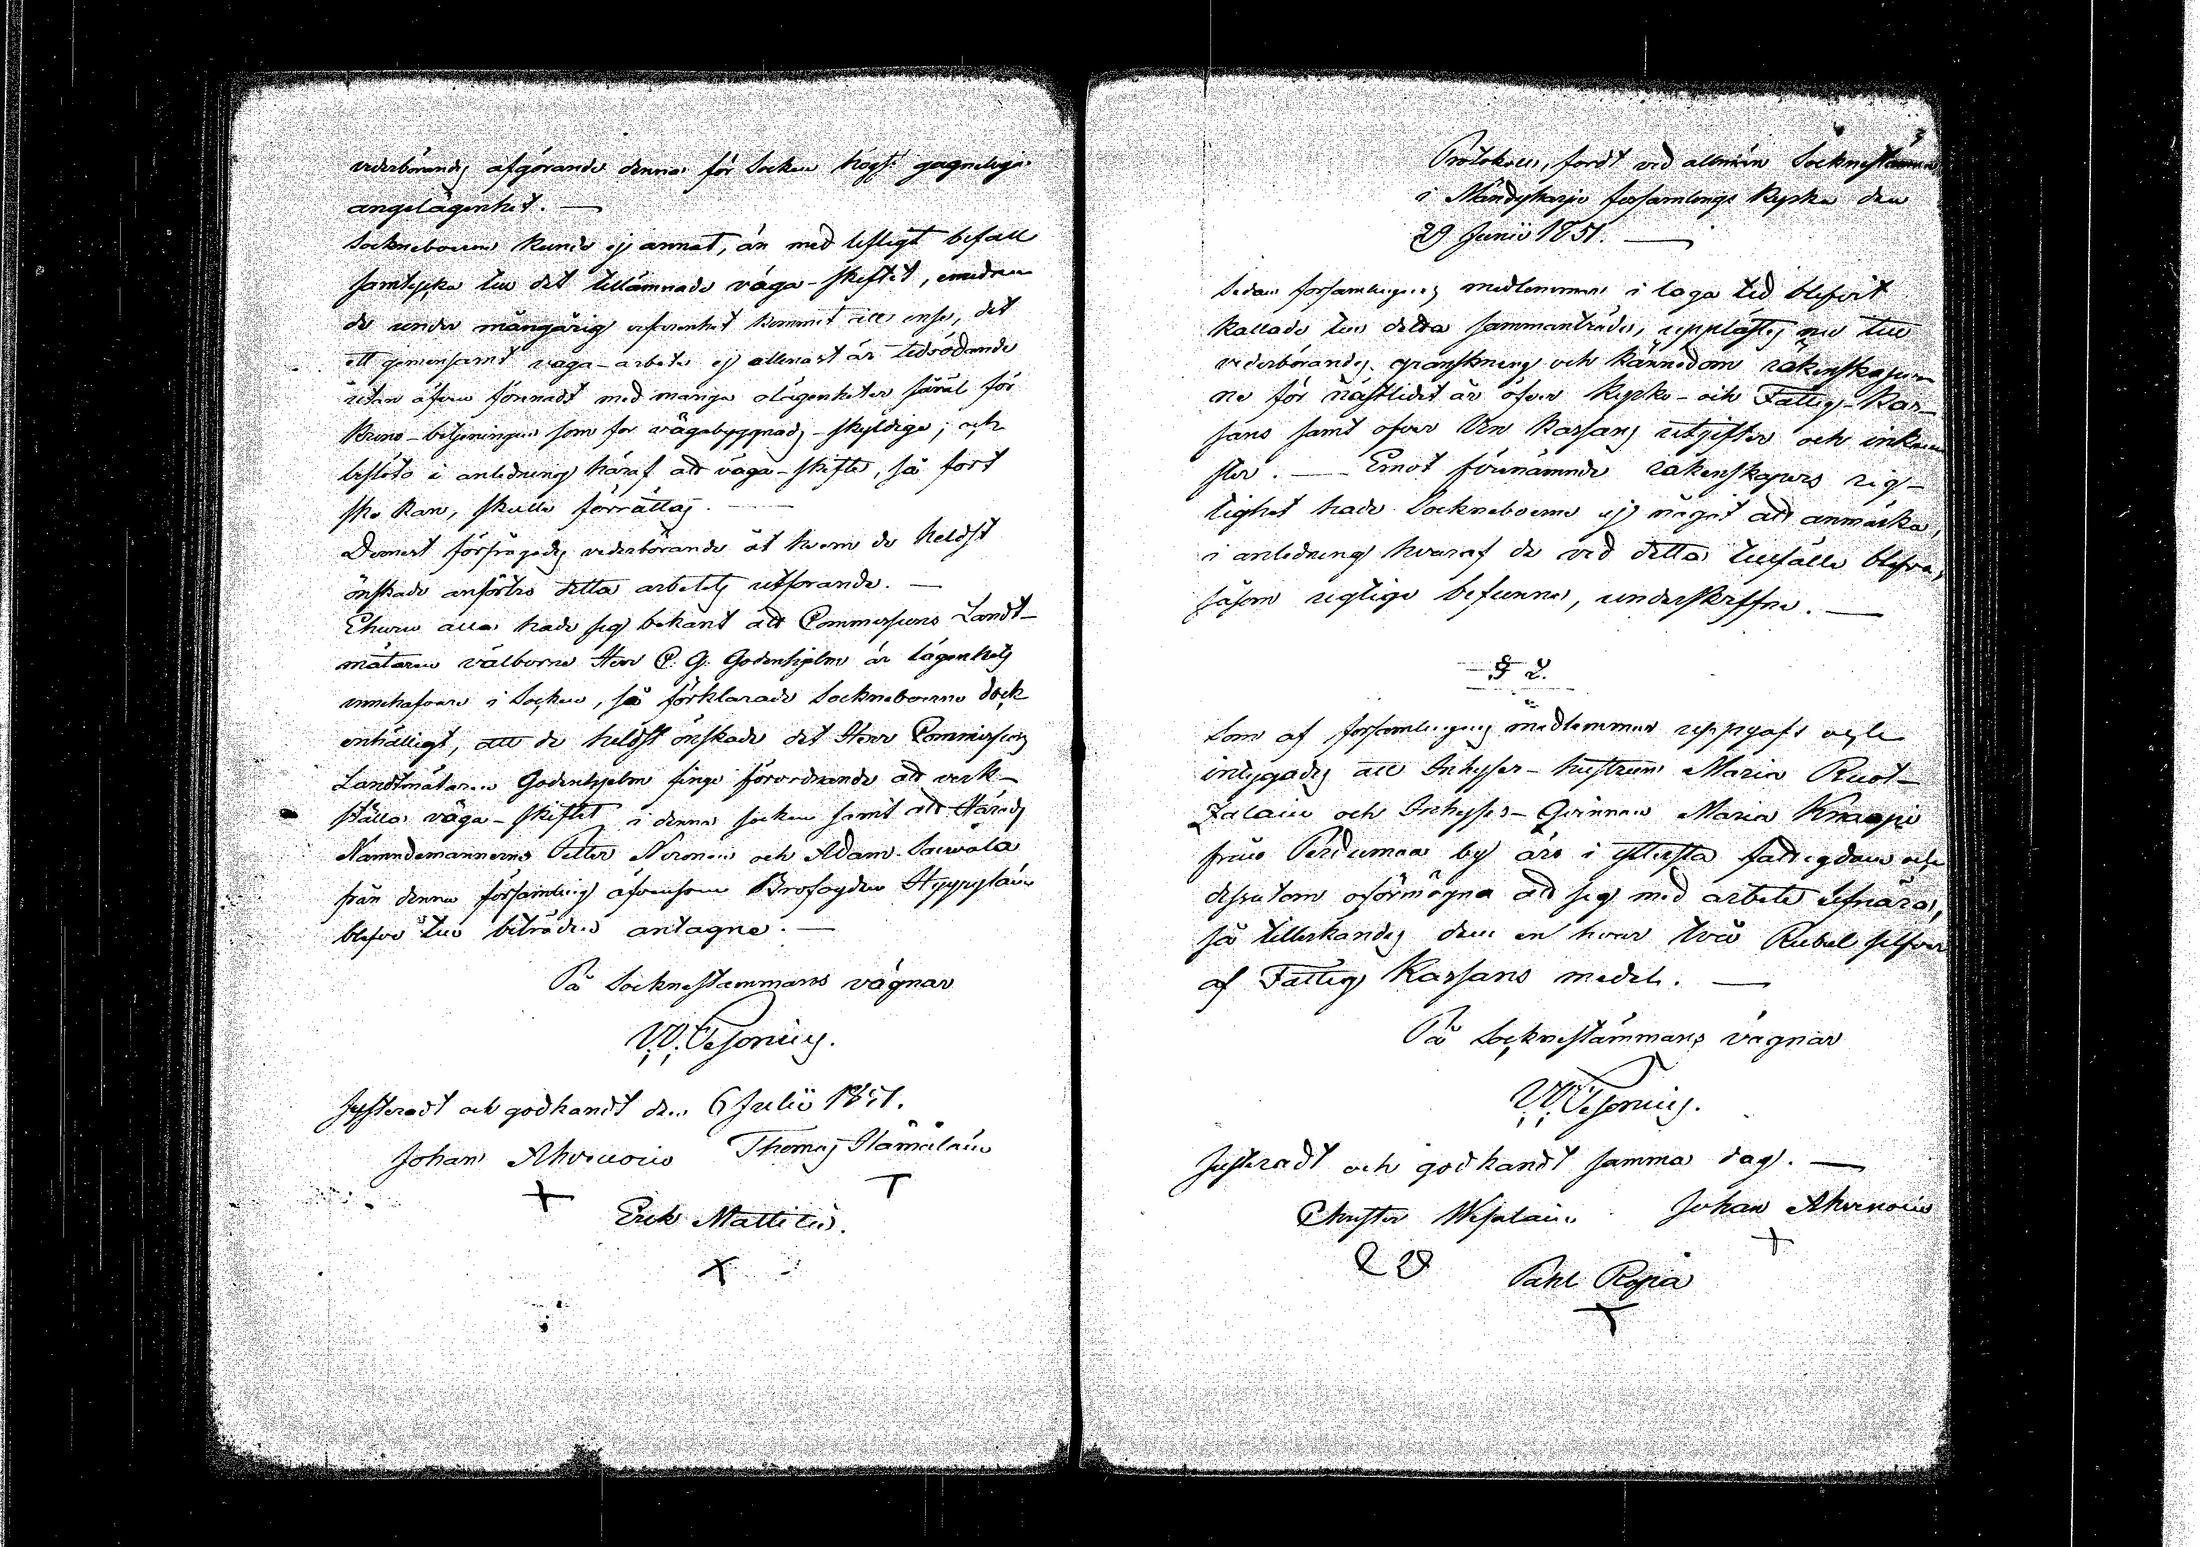 vederbörandes afgörande denna för Socken högst gagneliga
angelägenhet. —
Sockneboerne kunde ej annat, än med lifligt bifall
samtycka till det tillämnade väga-skiftet, emedan
de under mångårig erfarenhet kommit till inse, det
ett gemensamt väga-arbete ej allenast är tidsödande
utan äfven förenadt med många olägenheter såväl för
Krono-betjeningen som för vägabyggnads-skyldige; och
beslöto i anledning häraf att väga-skifte, så fort
ske kan, skulle förrättas. —
Dernäst förfrågades vederbörande åt hvem de heldst
önskade anförtro detta arbetets utförande. —
Ehuru alla hade sig bekant att Commissions Landt-
mätaren välborne Herr C. G. Godenhjelm är lägenhets
innehafvare i Socken, så förklarade Sockneboerne dock
enhälligt, att de heldst önskade det Herr Commissions
Landtmätaren Godenhjelm finge förordnande att verk-
ställa väga-skiftet i denna socken samt att Härads
Nämndemännerne Petter Neronen och Adam Saivala
från denna församling äfvensom Brofogden Hyypyläin
blefve till biträden antagne. —
På Socknestämmans vägnar
W. Pesonius.
Justeradt och godkändt den 6 Julii 1851.
Johan Ahvenoin Thomas Hämäläin
Erik Mattilin.
Protokoll, fördt vid allmän Sockneståmma
i Mändyharju församlings Kyrka den
29 Junii 1851. —
Sedan församlingens medlemmar i laga tid blifvit
kallade till detta sammanträde, upplästes nu till
vederbörandes granskning och kännedom räkenskaper-
ne för nästlidit år öfver Kyrko- och Fattig-Kas-
sans samt öfver Vin Kassans utgifter och inkom-
ster. — Emot förenämnde räkenskapers rig-
tighet hade Socknboerne ej något att anmärka,
i anledning hvaraf de vid detta tillfälle blefvo,
såsom rigtige befunne, underskrifne. —
§ 2.
Som af församlingens medlemmar uppgafs och
intygades att Inhyses-hustrun Maria Ruot-
zalain och Inhyses-Qvinnan Maria Knaapi
från Pertumaa by äro i yttersta fattigdom och
dessutom oförmögna att sig med arbete lifnära,
så tillerkändes dem en hvar två Rubel silfver
af Fattig Kassans medel. —
På Sockneståmmans vägnar
W. Pesonius.
Justeradt och godkändt samma dag. —
Christer Wesalain Johan Ahvenoin
Pahl Ropa